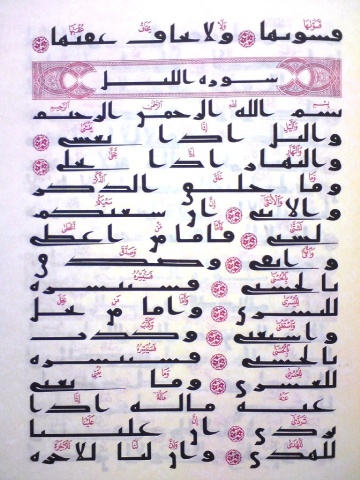 فسويها ولا يخاف عقبها
سورة الليل
بسم الله الرحمن الرحيم
واليل اذا يغشى
والنهار اذا تجلى
وما خلق الذكر
والانثى ان سعيكم
لشتى فاما من اعطى
واتقى وصدق
بالحسنى فسنيسره
لليسرى واما من بخل
واستغنى وكذب
بالحسنى فسنيسره
للعسرى وما يغنى
عنه ماله اذا
تردى ان علينا
للهدى وان لنا للاخرة